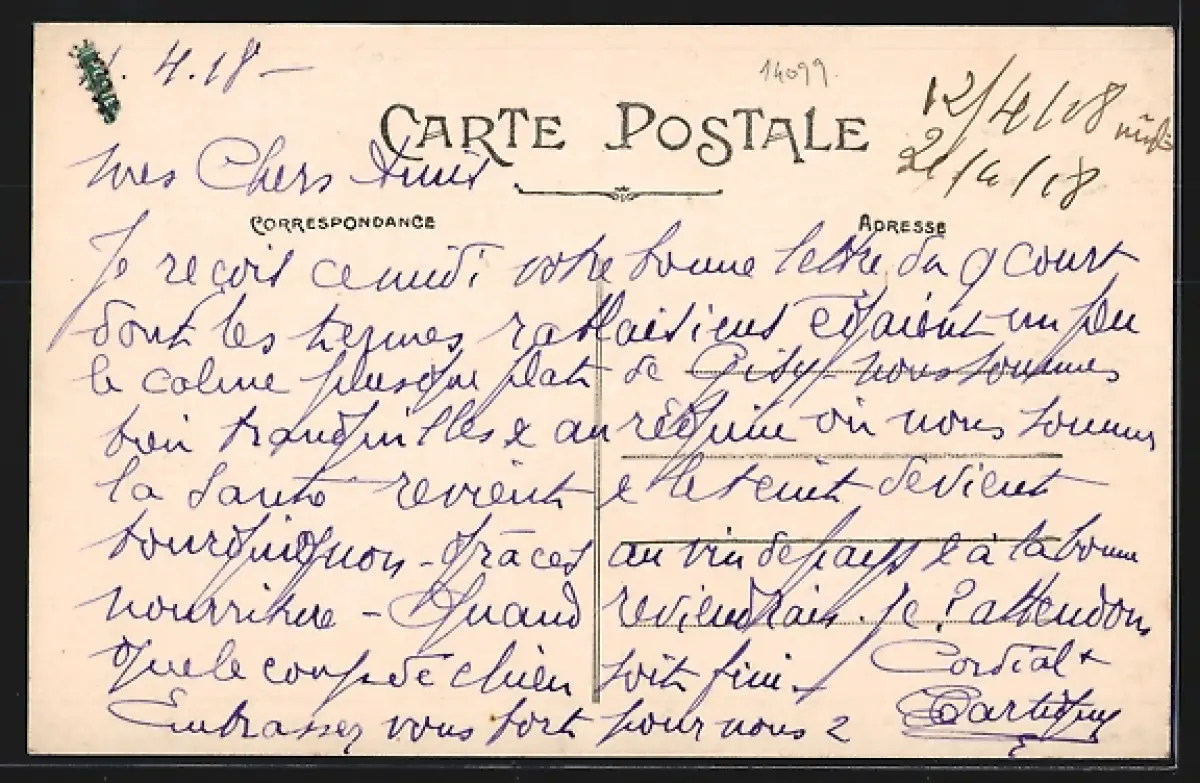 . 4.18 -
14099.
12/4/18 midi
21/4/18
CARTE POSTALE
mes Chers Amis
CORRESPONDANCE
ADRESSE
Je reçois ce midi votre bonne lettre du 9 court
dont les termes rablaisiens égaient un peu
le calme plusque plat de Gisy - nous sommes
bien tranquilles & au régime où nous sommes
la santé revient & le teint devient
bourguignon - grâces au vin de pays & à la bonne
nourriture - Quand reviendrais. je ? attendons
que le coup de chien soit fini -
Cordialt
Embrassez vous fort pour nous 2